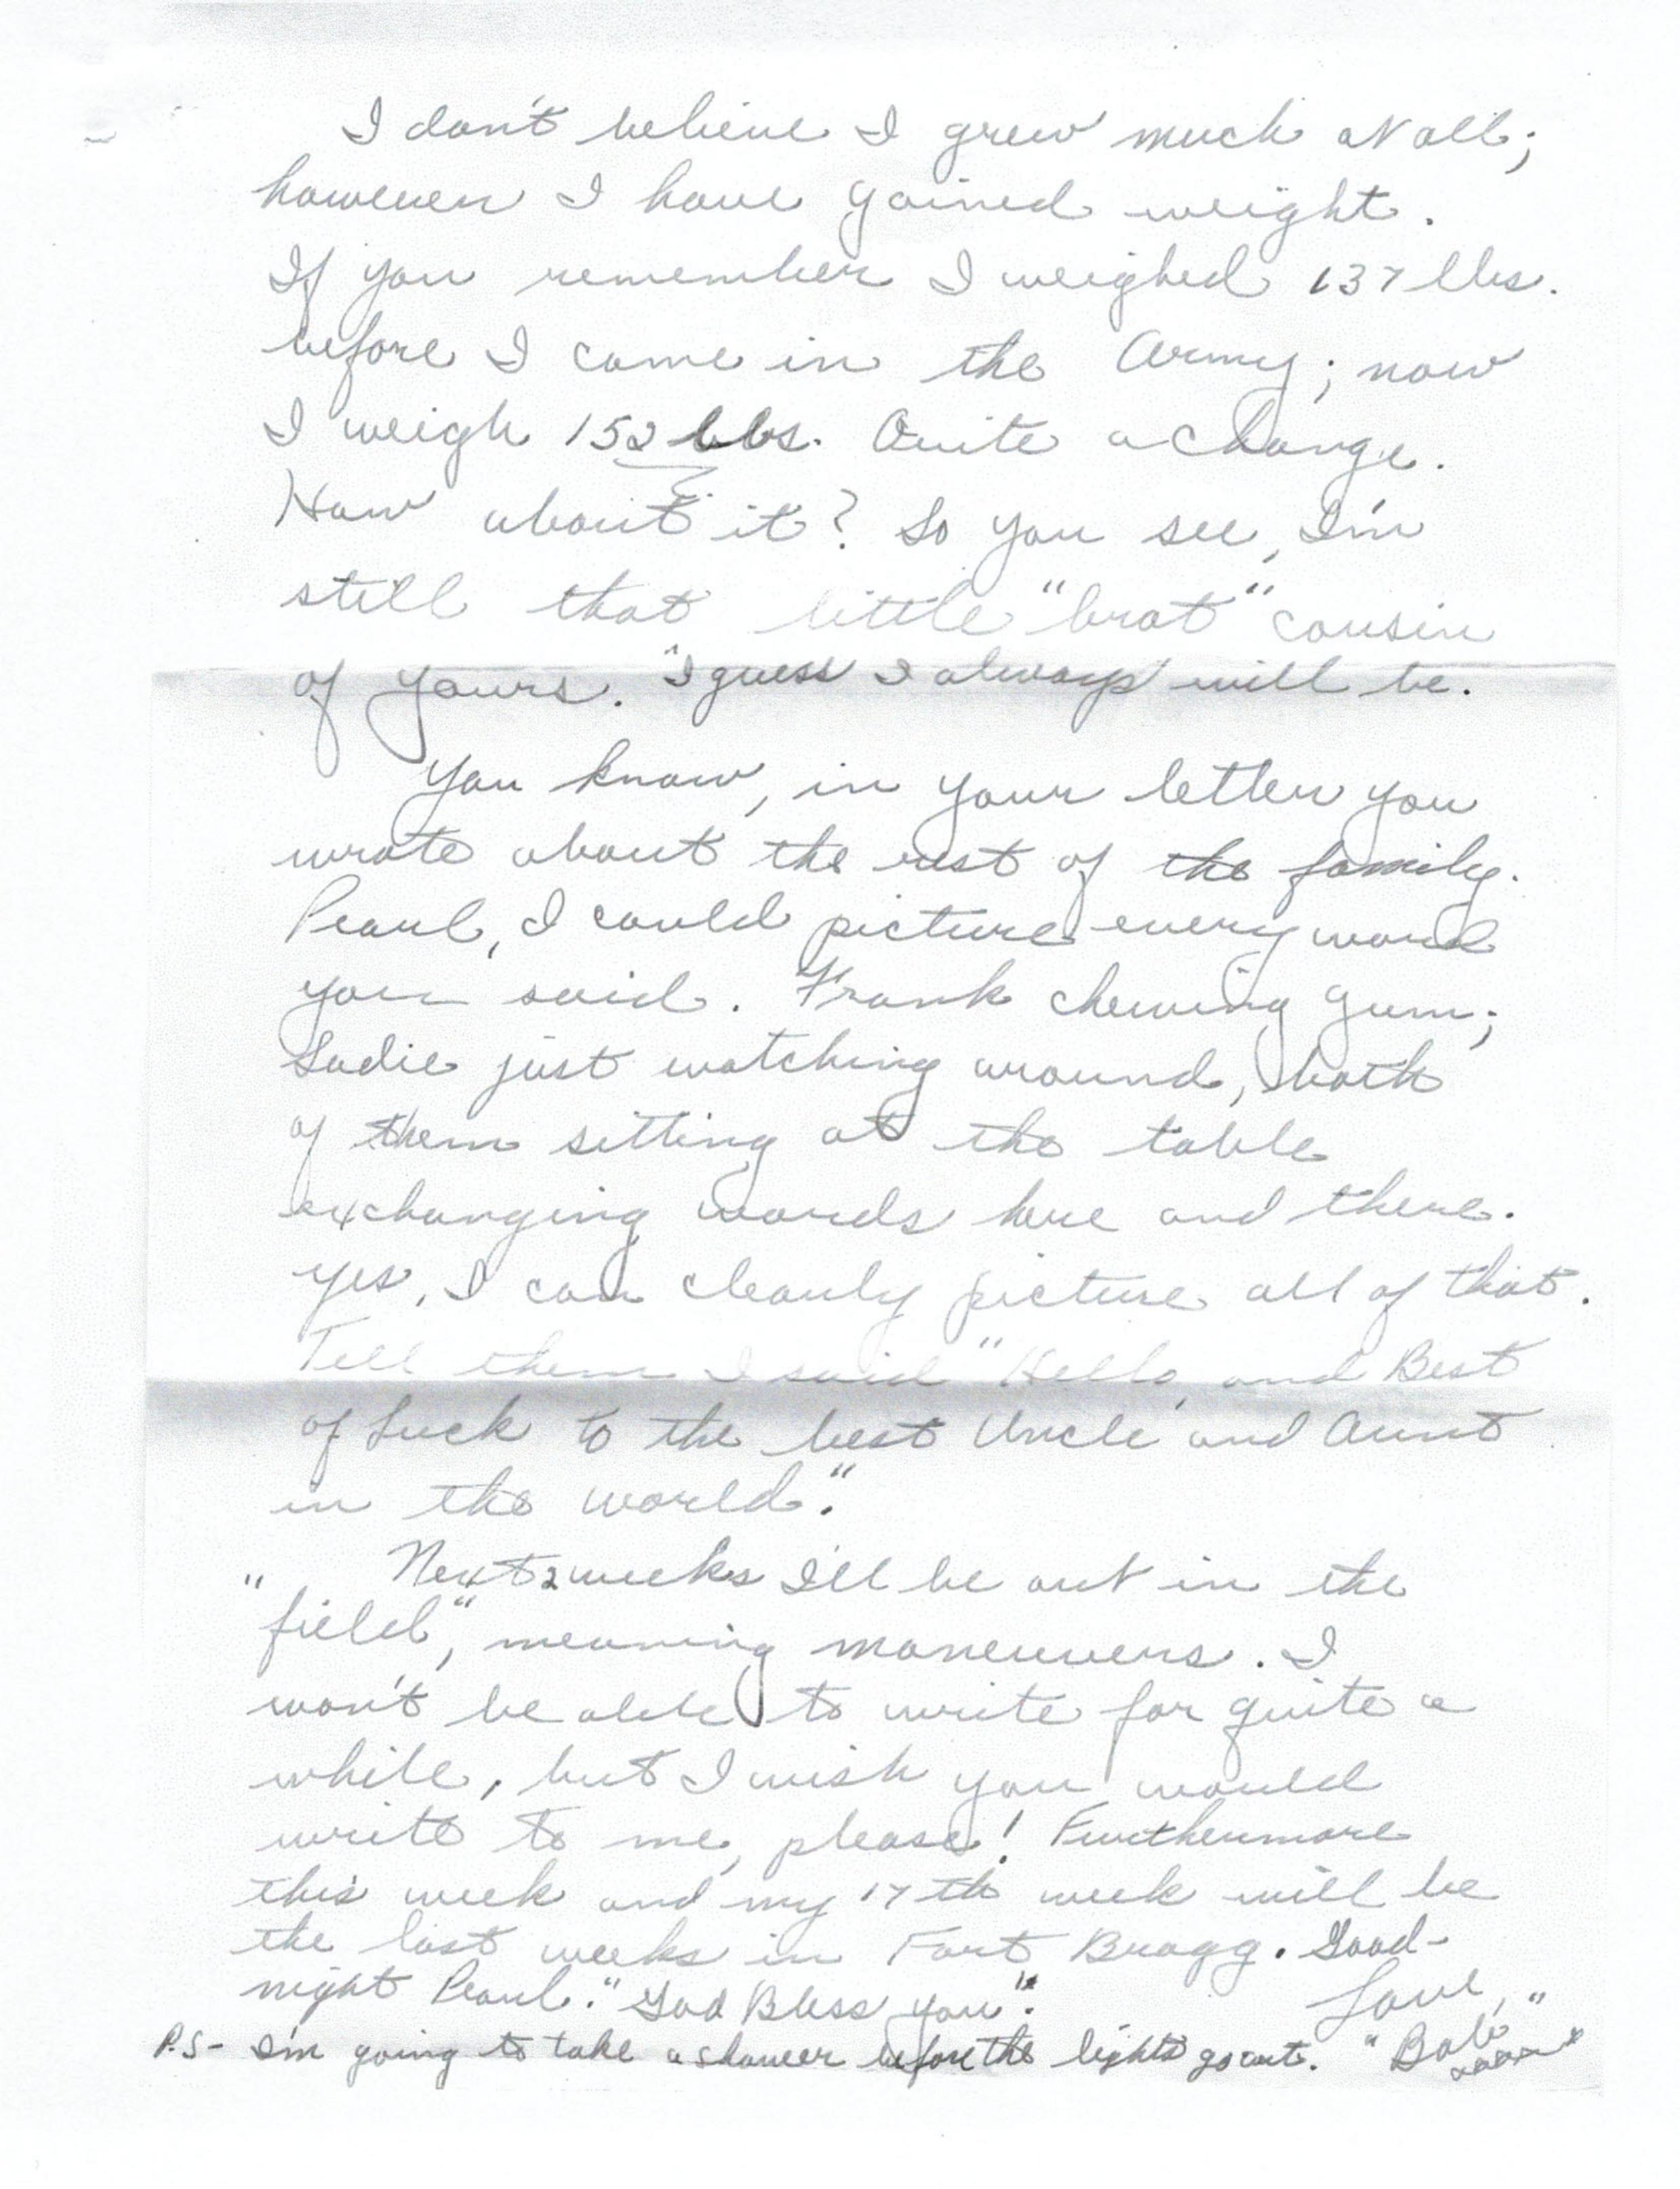 I don't believe I grew much at all;
however I have gained weight.
If you remember I weighed 137 lbs.
before I came in the Army; now
I weigh 152 lbs. Quite a change.
How about it? So you see, I'm
still that little "brat" cousin
of yours. I guess I always will be.
You know, in your letter you
wrote about the rest of the family.
Pearl, I could picture every word
you said. Frank chewing gum;
Sadie just watching around, both
of them sitting at the table
exchanging words here and there.
Yes, I can clearly picture all of that.
Tell them I said "Hello, and Best
of Luck to the best Uncle and Aunt
in the world."
Next 2 weeks I'll be out in the
"field", meaning maneuvers. I
won't be able to write for quite a
while, but I wish you would
write to me, please! Furthermore
this week and my 17th week will be
the last weeks in Fort Bragg. Good-
night Pearl. "God Bless you".
Love,
P.S- I'm going to take a shower before the lights go out. "Bob"
xxxx